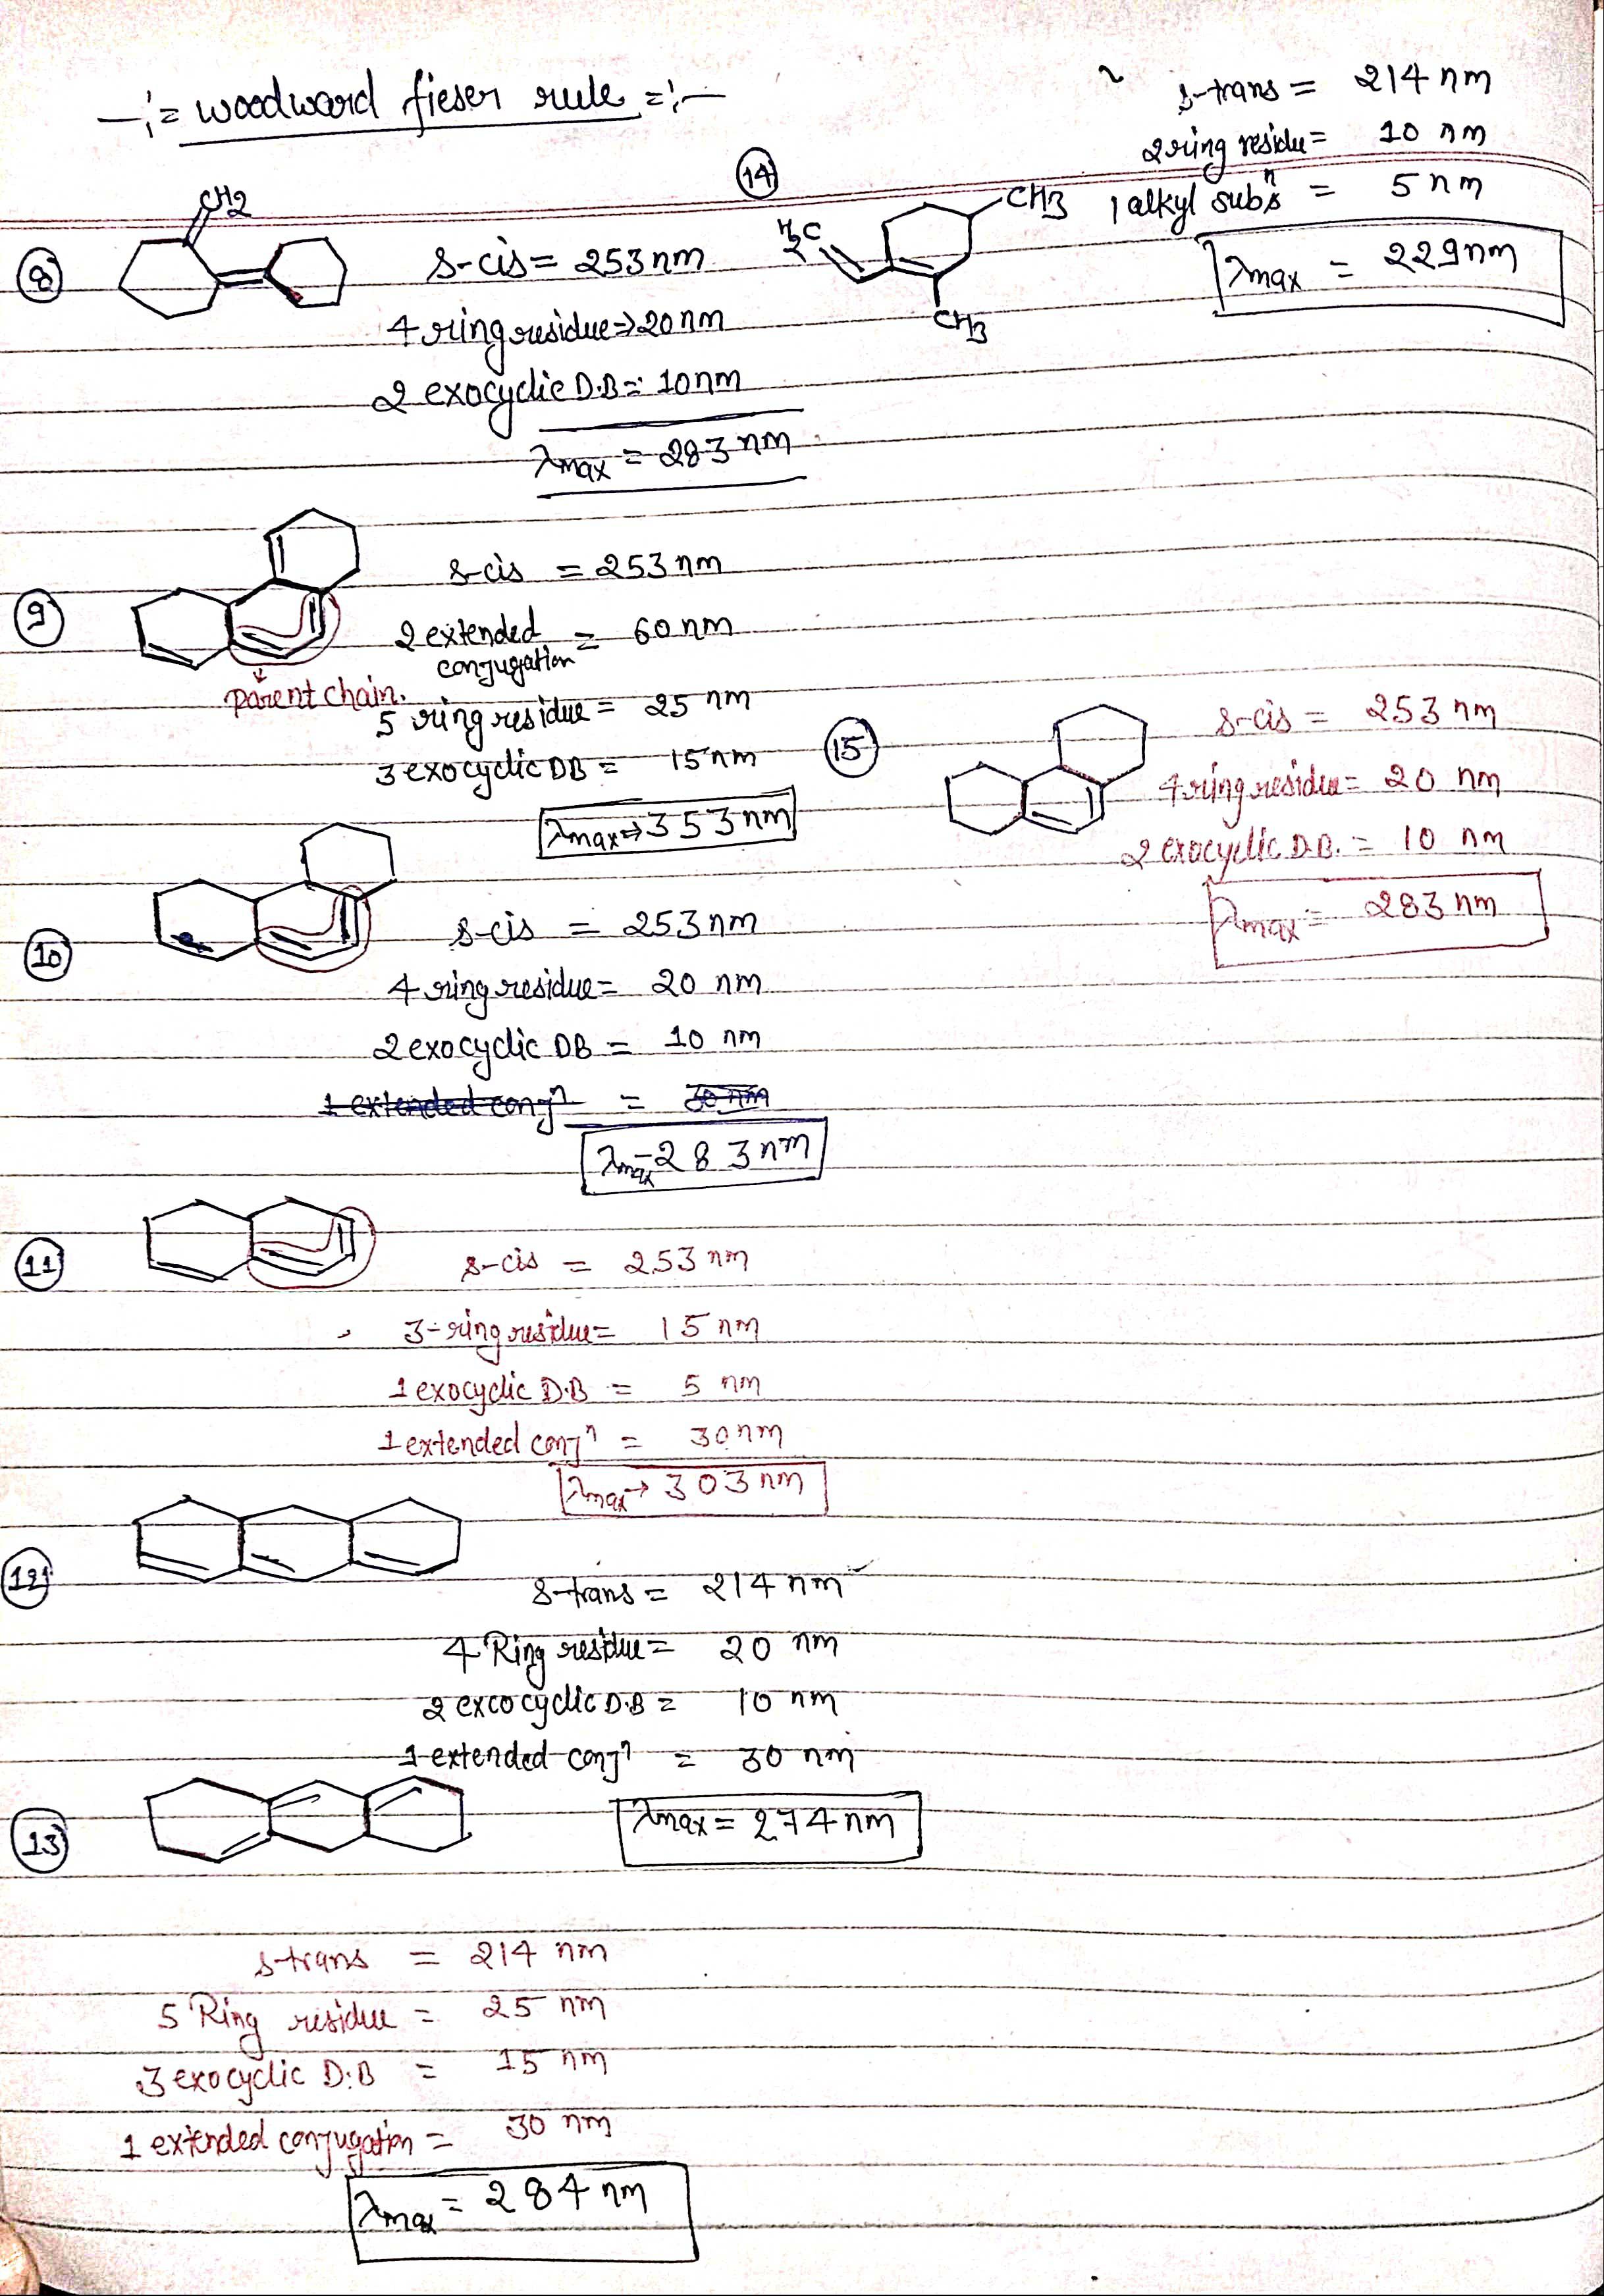 -:= woodward fieser rule =:-
8
CH2
s-cis = 253 nm
4 ring residue => 20 nm
2 exocyclic D.B = 10 nm
λmax = 283 nm
9
s-cis = 253 nm
2 extended conjugation = 60 nm
parent chain.
5 ring residue = 25 nm
3 exocyclic DB = 15 nm
λmax => 353 nm
10
s-cis = 253 nm
4 ring residue = 20 nm
2 exocyclic DB = 10 nm
1 extended conjn = 30 nm
λmax = 283 nm
11
s-cis = 253 nm
3-ring residue = 15 nm
1 exocyclic D.B = 5 nm
1 extended conjn = 30 nm
λmax → 303 nm
12
s-trans = 214 nm
4 Ring residue = 20 nm
2 excocyclic D.B = 10 nm
1 extended conjn = 30 nm
λmax = 274 nm
13
s-trans = 214 nm
5 Ring residue = 25 nm
3 exocyclic D.B = 15 nm
1 extended conjugation = 30 nm
λmax = 284 nm
14
H2C
CH3
CH3
s-trans = 214 nm
2 ring residue = 10 nm
1 alkyl subsn = 5 nm
λmax = 229 nm
15
s-cis = 253 nm
4 ring residue = 20 nm
2 exocyclic D.B. = 10 nm
λmax = 283 nm